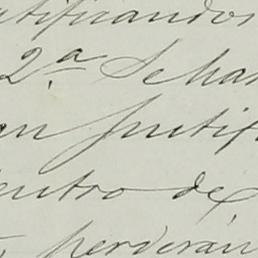 tificandos
2ª Se han
an justifi
entro de
perderán